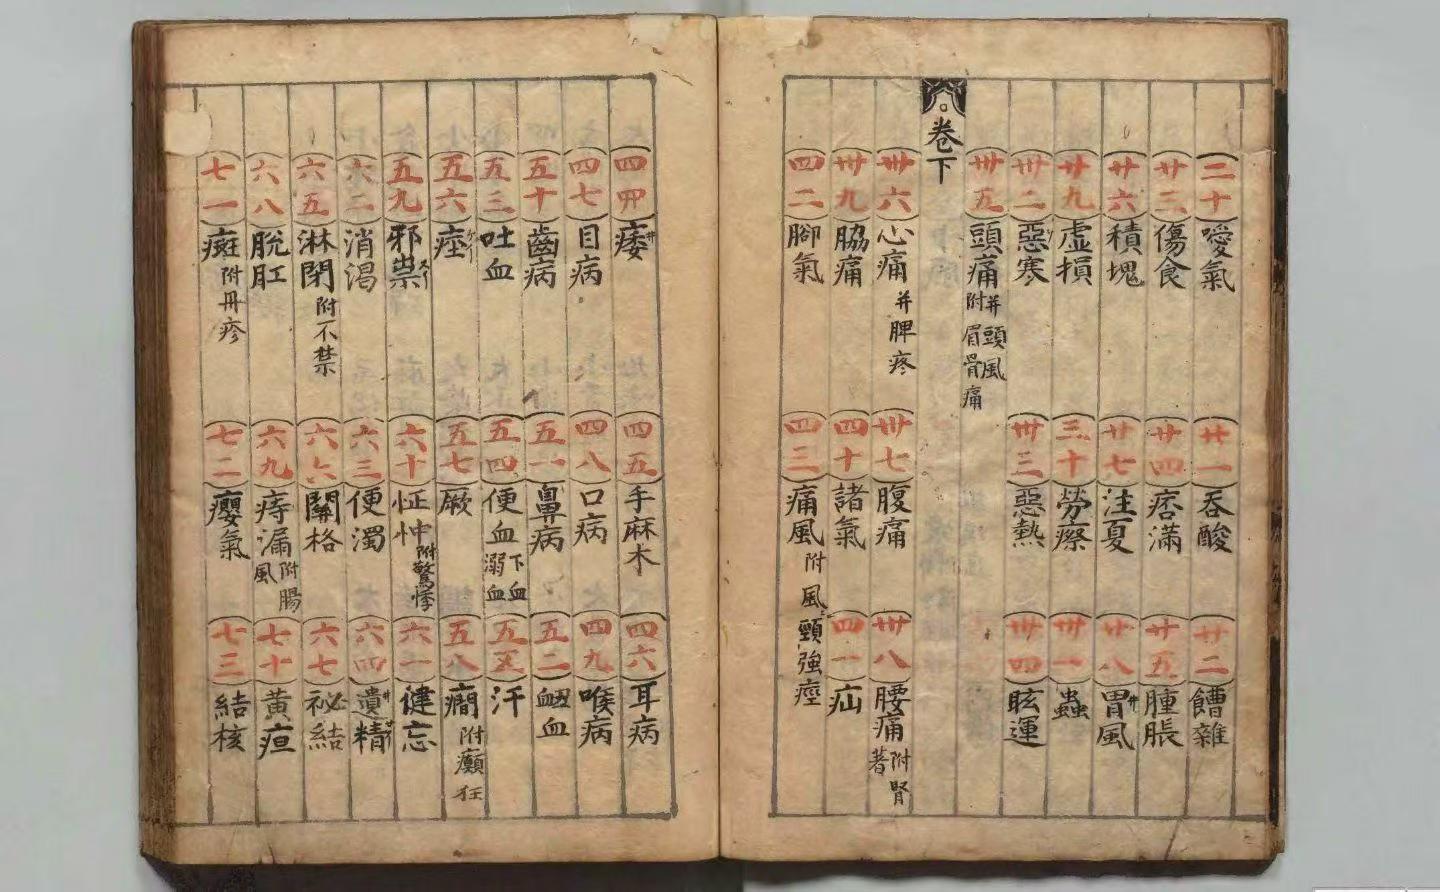 二十 噯氣 廿一 吞酸 廿二 雜
廿三 傷食 廿四 痞滿 廿五 腫脹
廿六 積塊 廿七 注夏 廿八 胃風
廿九 虛損 三十 勞瘵 卅一 蟲
卅二 惡寒 卅三 惡熱 卅四 眩運
卅五 頭痛 并頭風 附眉骨痛
卷下
卅六 心痛 并脾疼 卅七 腹痛 卅八 腰痛 附腎著
卅九 脇痛 四十 諸氣 四一 疝
四二 腳氣 四三 痛風 附風 強痙
四四 痿 四五 手麻木 四六 耳病
四七 目病 四八 口病 四九 喉病
五十 齒病 五一 鼻病 五二 衂血
五三 吐血 五四 便血 下血 溺血 五五 汗
五六 痓 五七 厥 五八 癇 附癲狂
五九 邪祟 六十 怔忡 附驚悸 六一 健忘
六二 消渴 六三 便濁 六四 遺精
六五 淋閉 附不禁 六六 關格 六七 祕結
六八 脫肛 六九 痔漏 附腸風 七十 黃疸
七一 癍 附丹疹 七二 癭氣 七三 結核